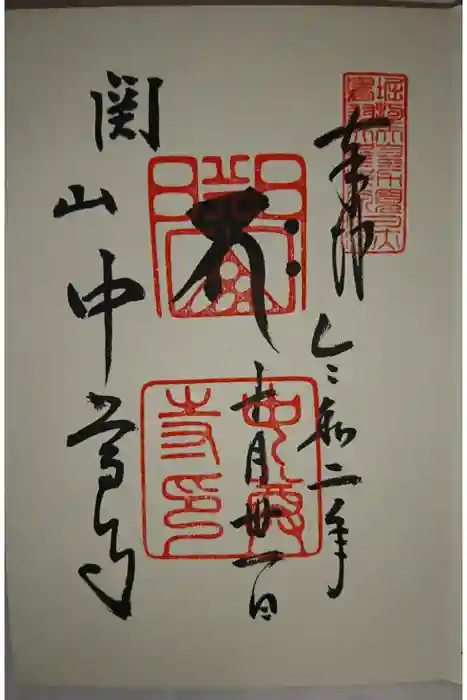 奉拝
令和二年
十月廿一日
関山中尊寺
中尊
寺印